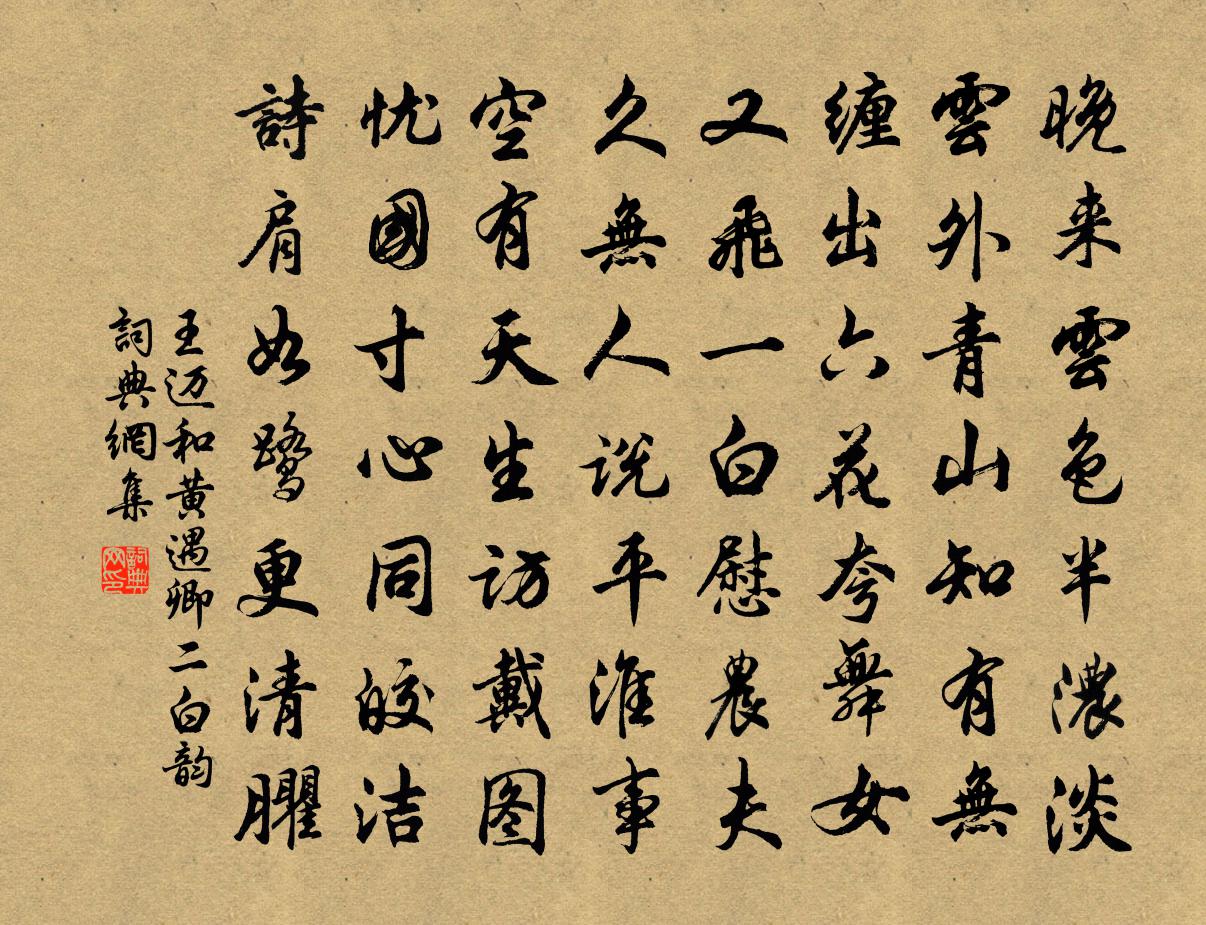 晚来雲色半濃淡
雲外青山知有無
缠出六花夸舞女
又飛一白慰農夫
久無人说平淮事
空有天生访戴图
忧國寸心同皎洁
詩肩如鹭更清臞
王迈和黄遇卿二白韵
詞典網集
詞典網印